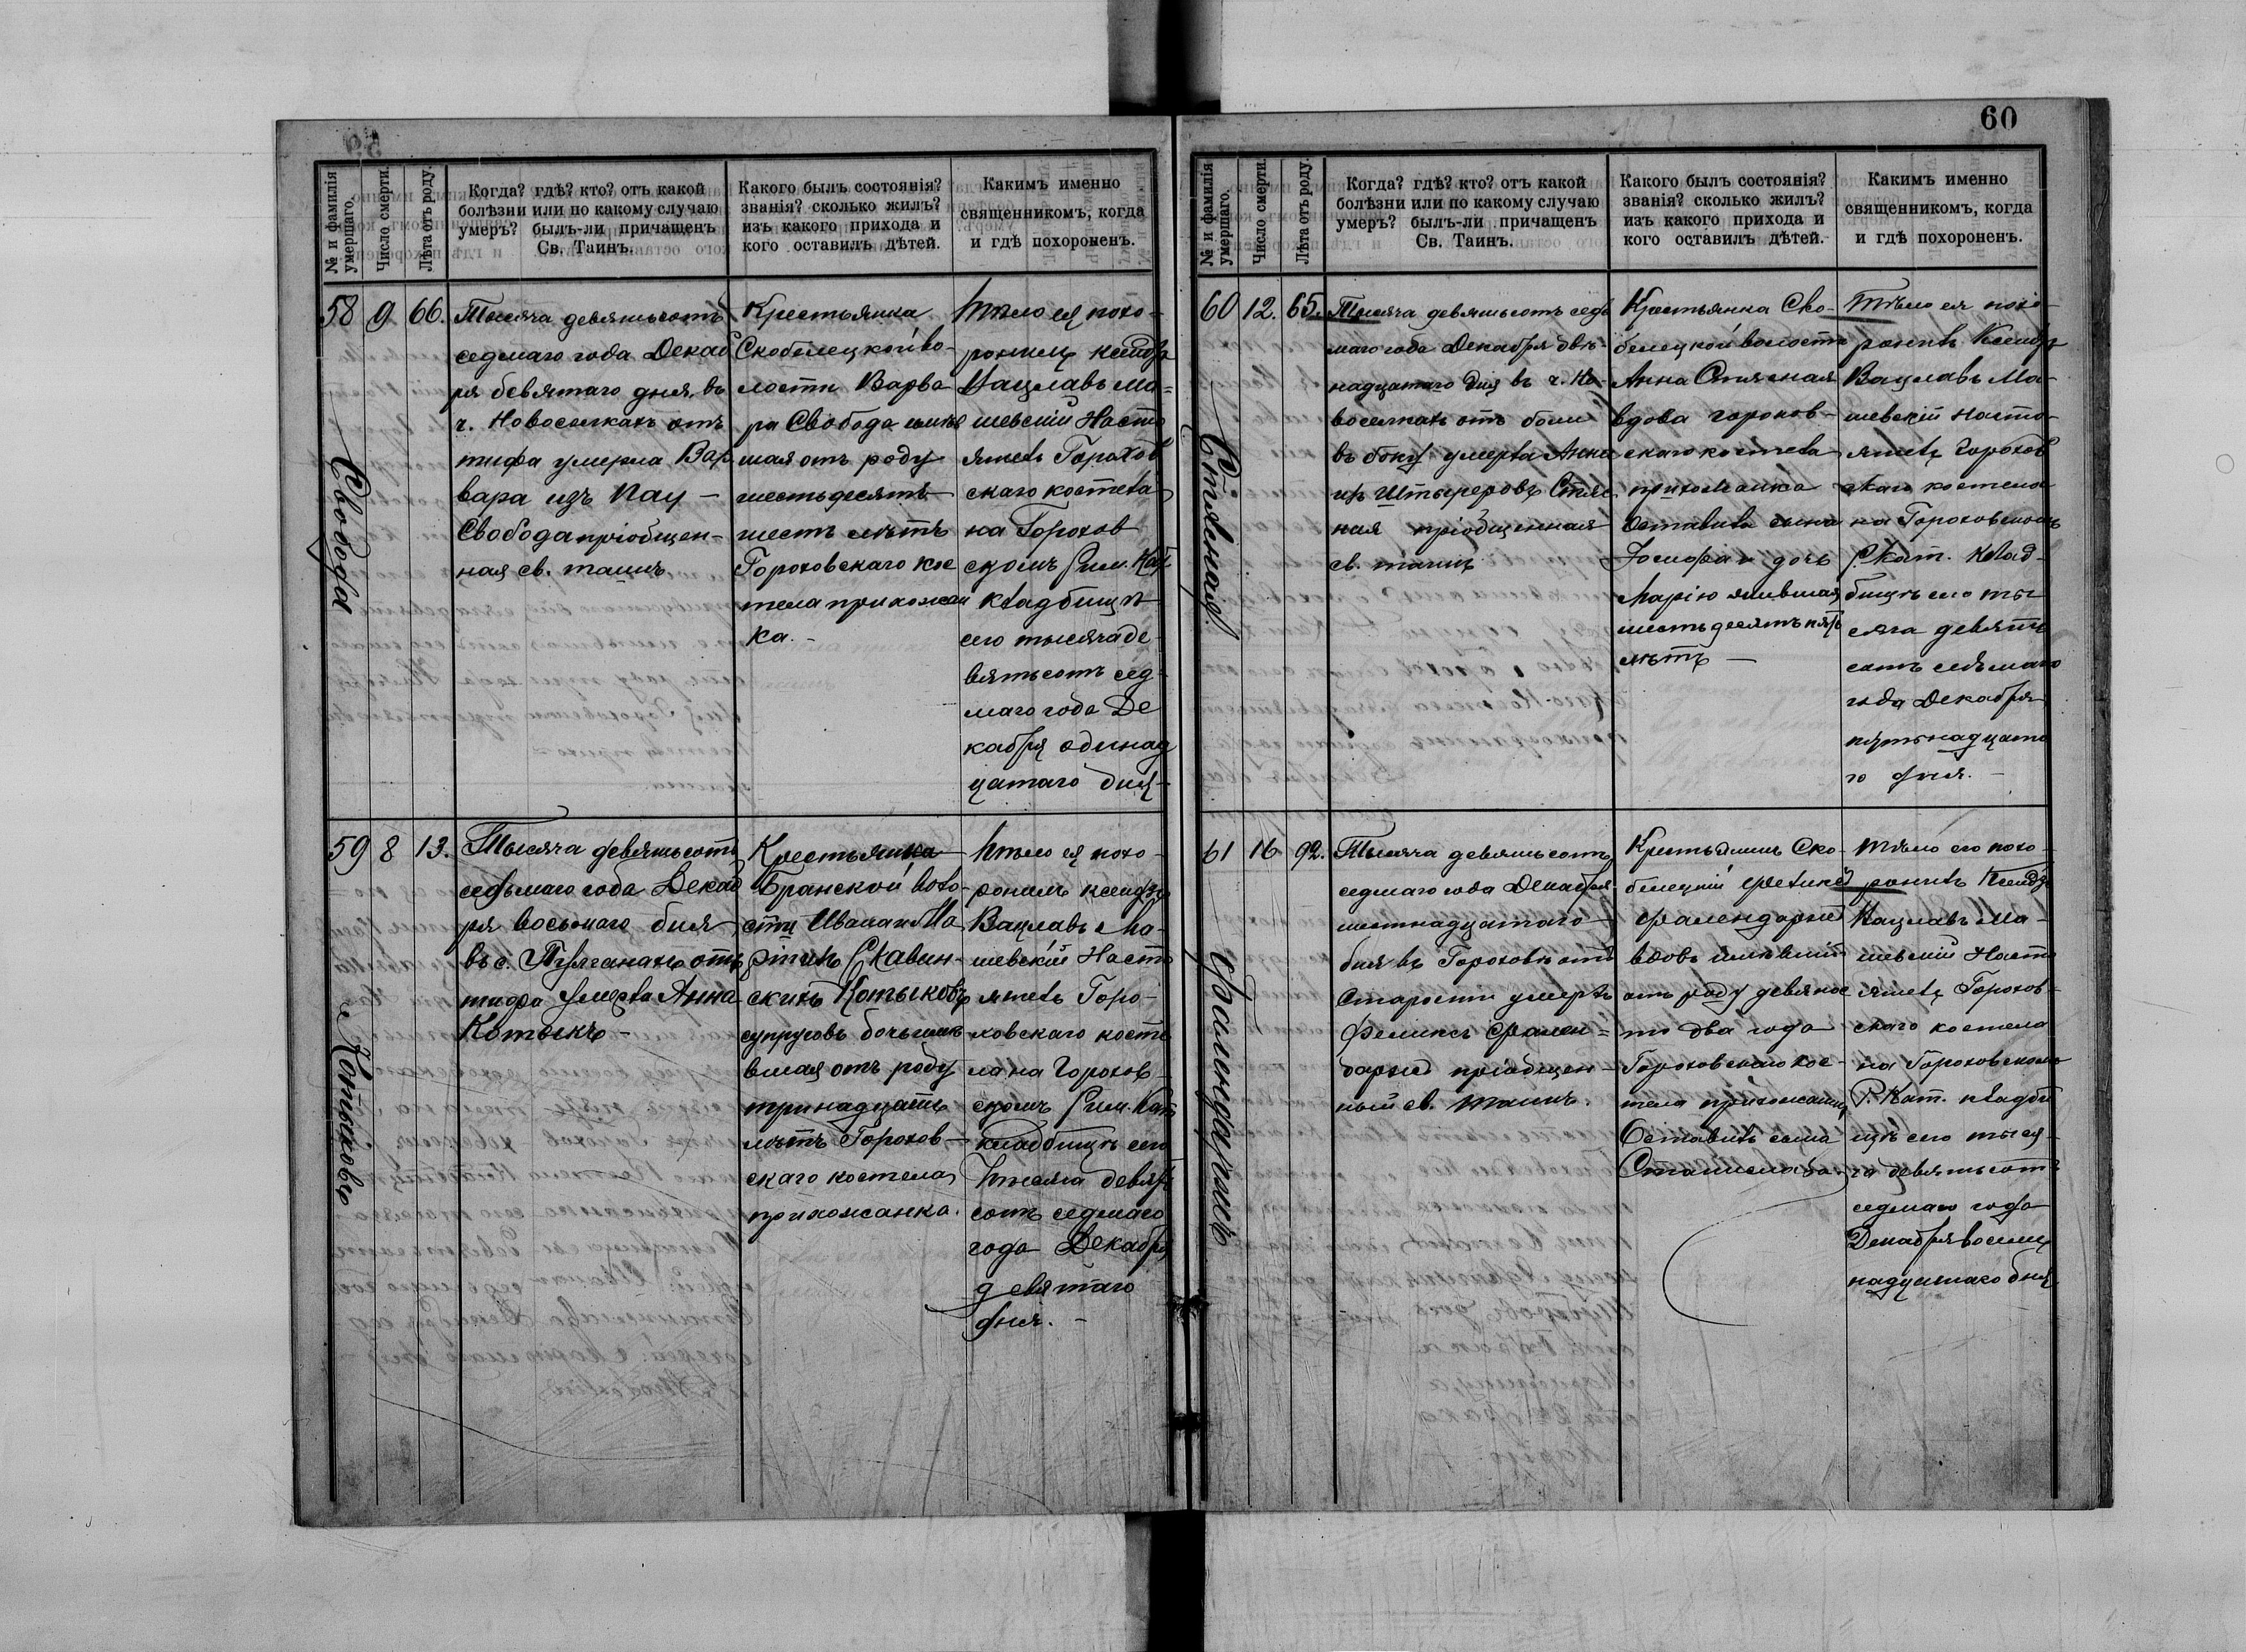 60
№ и фамилія умершаго.
Число смерти.
Лѣта отъ роду.
Когда? гдѣ? кто? отъ какой
болѣзни или по какому случаю
умеръ? былъ-ли причащенъ
Св. Таинъ.
Какого былъ состоянія?
званія? сколько жилъ?
изъ какого прихода и
кого оставилъ дѣтей.
Какимъ именно
священникомъ, когда
и гдѣ похороненъ.
58
Свобода
9
66.
Тысяча девятьсотъ
седмаго года Декаб
ря девятаго дня въ
ч. Новоселкахъ отъ
тифа умерла Вар
вара изъ Кау -
Свобода пріобщен-
ная св. таинъ
Крестьянка
Скобелецкой во-
лости Варва
ра Свобода имѣв
шая отъ роду
шестьдесятъ
шесть лѣтъ
Гороховскаго кос
тела прихожан
ка. -
Тѣло ея похо-
ронилъ ксендзъ
Вацлавъ Ма-
шевскій Насто
ятель Горохов
скаго костела
на Горохов
скомъ Рим. Кат.
кладбищѣ
сего тысяча де
вятьсотъ сед-
маго года Де
кабря одинад
цатаго дня -
59
Котыковъ
8
13.
Тысяча девятьсотъ
седьмаго года Декаб
ря восьмаго дня
въ с. отъ
тифа умерла Анна
Котыкъ -
Крестьянка
Бранской воло-
сти Ивана и Ма
ріи Скавин-
скихъ Котыковъ
супруговъ дочь имѣ
вшая отъ роду
тринадцать
лѣтъ Горохов-
скаго костела
прихожанка.
Тѣло ея похо-
ронилъ ксендзъ
Вацлавъ Ма-
шевскій Насто
ятель Горо-
ховскаго косте
ла на Горохов-
скомъ Рим. Кат.
кладбищѣ сего
тысяча девять
сотъ седмаго
года Декабря
девятаго
дня. -
№ и фамилія умершаго.
Число смерти.
Лѣта отъ роду.
Когда? гдѣ? кто? отъ какой
болѣзни или по какому случаю
умеръ? былъ-ли причащенъ
Св. Таинъ.
Какого былъ состоянія?
званія? сколько жилъ?
изъ какого прихода и
кого оставилъ дѣтей.
Какимъ именно
священникомъ, когда
и гдѣ похороненъ.
60
Стяsная
12.
65.
Тысяча девятьсотъ седь
маго года Декабря двѣ-
надцатаго дня въ ч. Но-
воселкахъ отъ боли
въ боку умерла Анна
изъ Штыреровъ
ная пріобщенная
св. таинъ
Крестьянка Ско-
белецкой волости
Анна
вдова горохов-
скаго костела
прихожанка
Оставила сына
Іосифа и дочь
Марію жившая
шестьдесятъ пять
лѣтъ -
Тѣло ея похо-
ронилъ Ксендзъ
Вацлавъ Ма-
шевскій Насто-
ятель Горохов
скаго костела
на Гороховскомъ
Р. Кат. клад-
бищѣ сего ты
сяча девять
сотъ седьмаго
года Декабря
пятьнадцата
го дня. -
61
Фалендаршъ
16
92.
Тысяча девятьсотъ
седмаго года Декабря
шестнадцатаго
дня въ Гороховѣ отъ
Старости умеръ
Феликсъ Фален-
даршъ пріобщен-
ный св. таинъ.
Крестьянинъ Ско-
белецкій Феликсъ
Фалендаршъ
вдовъ имѣвшій
отъ роду девянос
то два года
Гороховскаго кос-
тела прихожанинъ
Оставилъ сына
Станислава.
Тѣло его похо-
ронилъ Ксендзъ
Вацлавъ Ма-
шевскій Насто
ятель Горохов-
скаго костела
на Гороховскомъ
Р. Кат. кладби
щѣ сего тыся
ча девятьсотъ
седмаго года
Декабря восем
надцатаго дня.